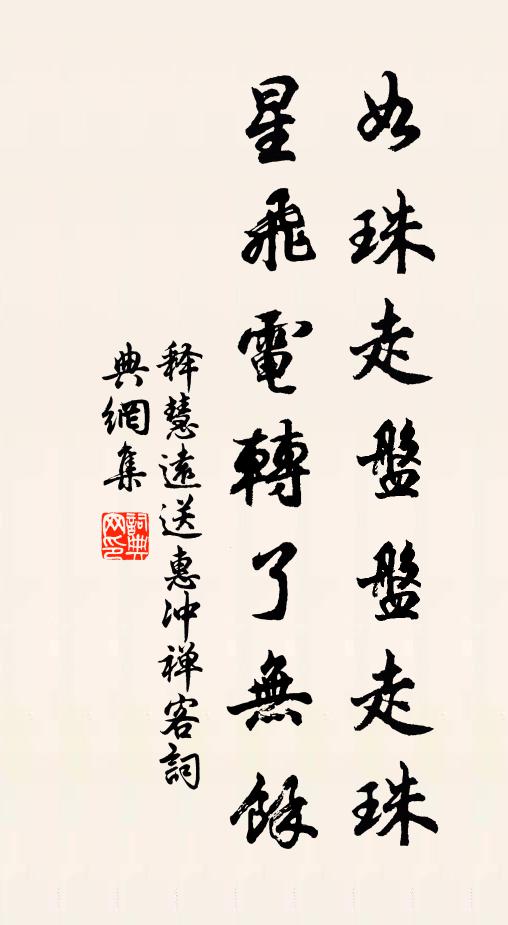 如珠走盤盤走珠
星飛電轉了無餘
释慧遠送惠冲禅客詞
典網集
詞典網印